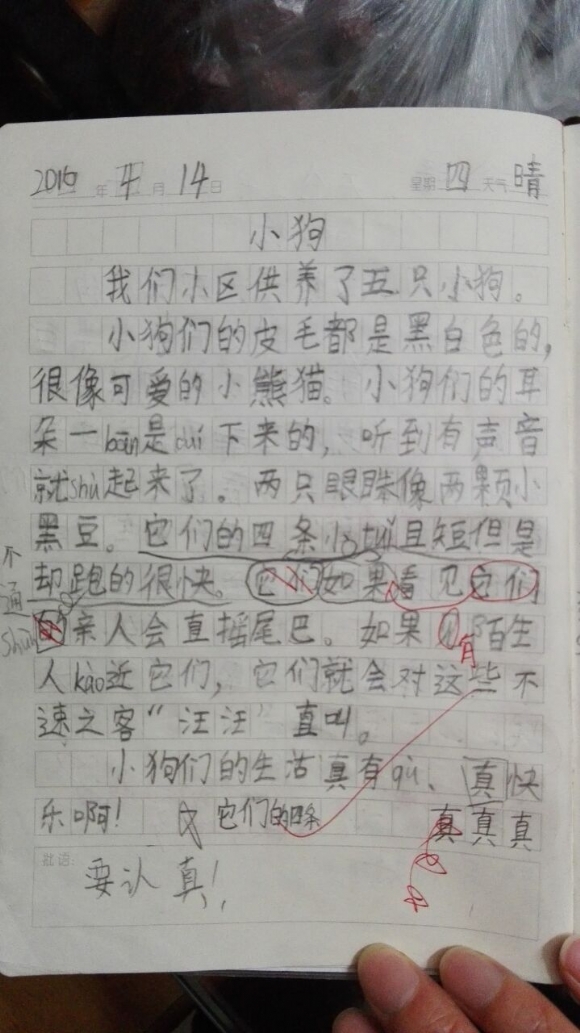 2016年4月14日 星期四 天气晴
小狗
我们小区供养了五只小狗。
小狗们的皮毛都是黑白色的,
很像可爱的小熊猫。小狗们的耳
朵一bān是cuí下来的,听到有声音
就shù起来了。两只眼睛像两颗小
黑豆。它们的四条小tuǐ且短但是
不 却跑的很快。它们如果看见它们
通 shùn 的亲人会直摇尾巴。如果有陌生
人kào近它们,它们就会对这些不
速之客“汪汪”直叫。
小狗们的生活真有qù、真快
乐啊! 它们的四条 真真真
批语:
要认真!